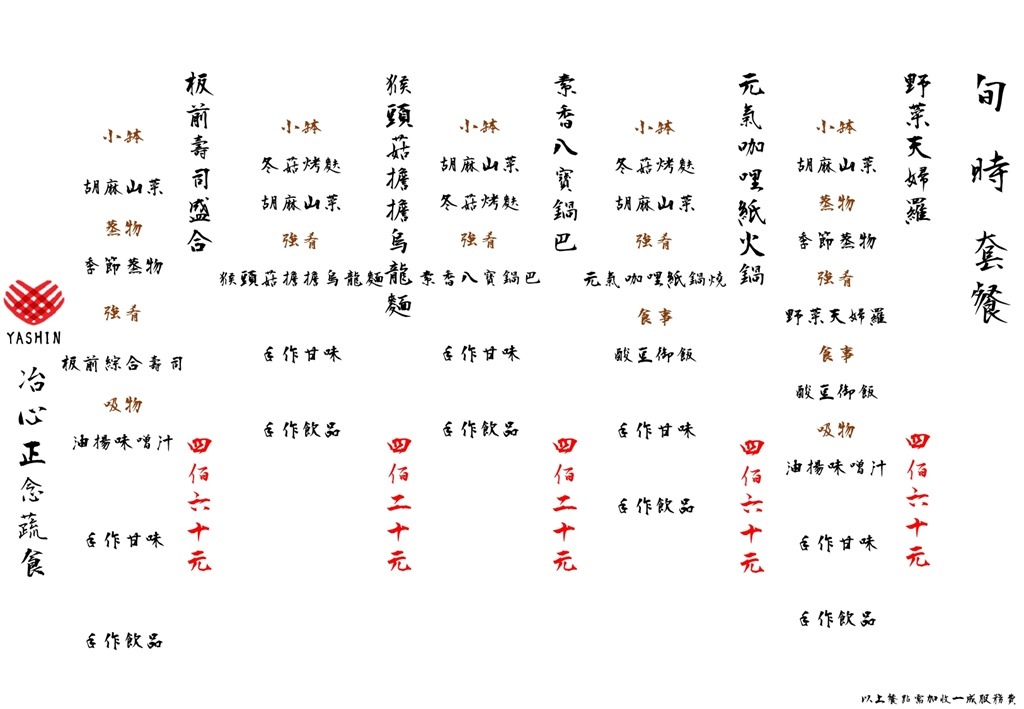 旬時套餐
野菜天婦羅
四佰六十元
小缽
胡麻山菜
蒸物
季節蒸物
強肴
野菜天婦羅
食事
酸豆御飯
吸物
油揚味噌汁
手作甘味
手作飲品
元氣咖哩紙火鍋
四佰六十元
小缽
冬菇烤麩
胡麻山菜
強肴
元氣咖哩紙鍋燒
食事
酸豆御飯
手作甘味
手作飲品
素香八寶鍋巴
四佰二十元
小缽
胡麻山菜
冬菇烤麩
強肴
素香八寶鍋巴
手作甘味
手作飲品
猴頭菇擔擔烏龍麵
四佰二十元
小缽
冬菇烤麩
胡麻山菜
強肴
猴頭菇擔擔烏龍麵
手作甘味
手作飲品
板前壽司盛合
四佰六十元
小缽
胡麻山菜
蒸物
季節蒸物
強肴
板前綜合壽司
吸物
油揚味噌汁
手作甘味
手作飲品
YASHIN
冶心正念蔬食
以上餐點需加收一成服務費